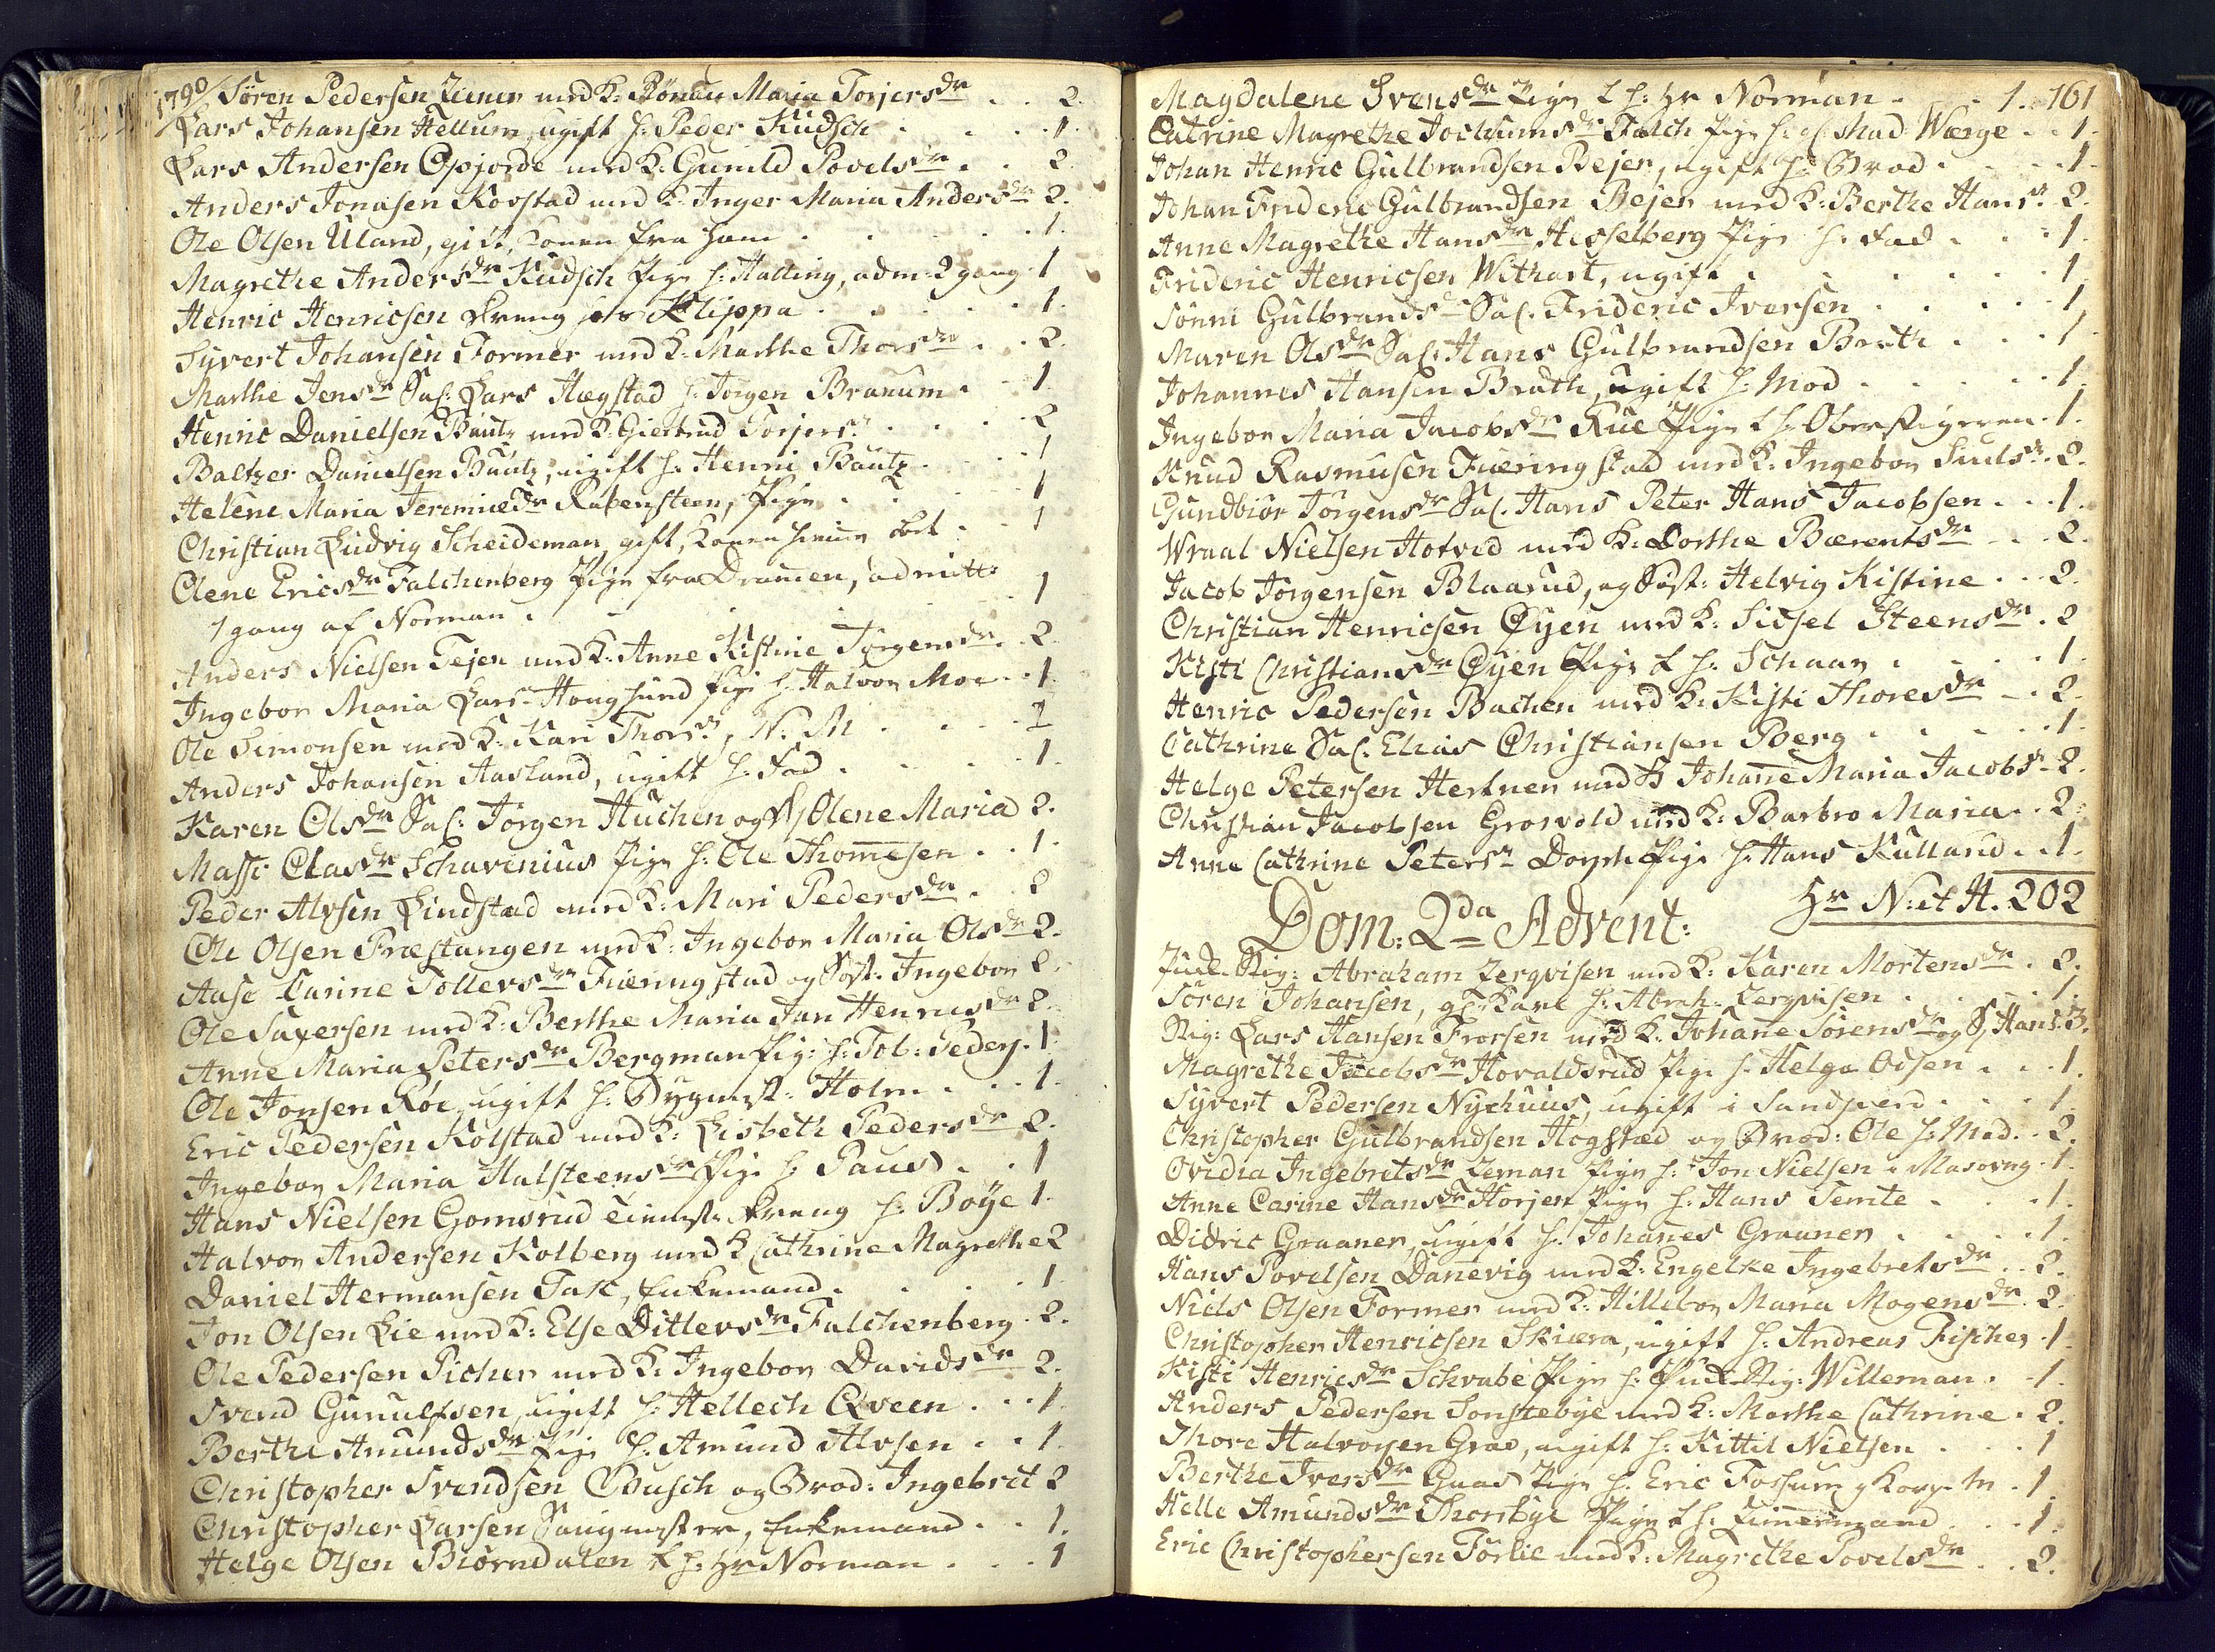 1790/ Sören Pedersen med K: Maria Torjersdr . . 2.
Lars Johansen Hellum, ugift h: Peder Kudsch . . . 1.
Lars Andersen Opjorde med K: Gunild Povelsdr . . 2.
Anders Jonasen Kovstad med K: Inger Maria Andersdr 2.
Ole Olsen Uland, gift, Konen fra ham . . . 1.
Magrethe Andersdr Kudsch Pige h: Halling, adm: 2 gang . 1
Henric Henricsen dreng hos Klippa . . . 1.
Syvert Johansen Former med K: Marthe Thorsdr . . 2.
Marthe Jensdr Sal: Lars Hægstad h: Jörgen Branum . . 1
Henric Danielsen Bautz med K: Giertrud Torjersdr . . . 2
Baltzer Danielsen Bautz, ugift h: Henric Bautz . . . 1
Helene Maria Jeremiædr Rabensteen, Pige . . . 1
Christian Ludvig Scheideman, gift, Konen . . 1
Olene Ericsdr Falchenberg Pige fra Dramen, admitt:
1 gang af Norman . . . 1
Anders Nielsen Tejen med K: Anne Kistine Jörgensdr . 2.
Ingebor Maria Lars. Hougsund Pige h: Halvor Moe . . 1.
Ole Simonsen med K: Kari Thorsdr, N. M . . . 2
Anders Johansen Aasland, ugift h: Fad . . . 1.
Karen Olsdr Sal: Jörgen Huchen og D/ Olene Maria 2.
Massi Clasdr Schavenius Pige h: Ole Thomesen . . 1.
Peder Alvsen Lindstad med K: Mari Pedersdr . . 2
Ole Olsen Præstangen med K: Ingebor Maria Olsdr 2.
Aase Carine Tollevsdr Fueringstad og Söst: Ingebor 2.
Ole Saxersen med K: Berthe Maria Jan Henricsdr 2.
Anne Maria Petersdr Bergman Pige h: Tob: Peders. 1
Ole Jonsen Röe, ugift h: Holm . . . 1.
Eric Pedersen Kolstad med K: Lisbeth Pedersdr 2.
Ingebor Maria Halsteensdr Pige h: Paus . . 1
Hans Nielsen Gomsrud dreng h: Böye 1.
Halvor Andersen Kolberg med K Cathrine Magrethe 2
Daniel Hermansen Fak, Enkemand . . . 1
Jon Olsen Lie med K: Else Ditlevsdr Falchenberg . 2.
Ole Pedersen Picher med K: Ingebor Davidsdr 2.
Svend Gunulfsen, ugift h: Hellech Qveen . . . 1.
Berthe Amundsdr Pige h: Amund Alvsen . . 1.
Christopher Svendsen Busch og Brod: Ingebret 2
Christopher Larsen, Enkemand . . 1.
Helge Olsen Biörndalen t h: Hr Norman . . . 1
Magdalene Svensdr Pige t h: Hr Norman . . . 1. 161
Catrine Magrethe Jochumsdr Falch Pige h: Wærge . . 1.
Johan Henric Gulbrandsen Bejer, ugift h: Brod . . . 1.
Johan Frideric Gulbrandsen Bejer med K: Berthe Hansdr 2.
Anne Magrethe Hansdr Hesselberg Pige h: Fad . . . 1.
Frideric Henricsen Withart, ugift . . . 1.
Sönni Gulbrandsdr Sal: Frideric Iversen . . . 1
Maren Olsdr Sal: Hans Gulbrandsen Brath . . . 1
Johannes Hansen Brath, ugift h: Mod . . . 1.
Ingebor Maria Jacobsdr Rue Pige t h: Oberstigeren . 1.
Knud Rasmusen Fueringstad med K: Ingebor 2.
Gundbiör Jörgensdr Sal: Hans Peter Hans Jacobsen . . . 1.
Wraal Nielsen Hotved med K: Dorthe Bærentsdr . . . 2.
Jacob Jörgensen Blaarud, og Söst: Helvig Kistine . . 2.
Christian Henricsen Öyen med K: Sidsel Steensdr . 2
Kisti Christiansdr Öyen Pige t h: Schaar . . . 1.
Henric Pedersen Bachen med K: Kisti Thoresdr . . 2.
Cathrine Sal: Elias Christiansen Berg . . . 1.
Helge Petersen Hertner med K Johanne Maria Jacobsdr 2.
Christian Jacobsen Growold med K: Barbro Maria . . 2
Anne Cathrine Petersdr Dorph Pige h: Hans Kulland . . 1.
Hr N: et H. 202
Dom: 2da Advent:
Stig: Abraham Zergvisen med K: Karen Mortensdr . 2.
Sören Johansen, gl: Karl h: Abrah: Zergvisen . . . 1.
Stig: Lars Hansen Frorsen med K: Johanne Sörensdr og S/ Hans. 3.
Magrethe Jacobsdr Hovaldsrud Pige h: Helge Odsen . . . 1.
Syvert Pedersen Nychuus, ugift i Sandsverd . . . 1.
Christopher Gulbrandsen Hogstad og Brod: Ole h: Mod . . 2.
Ovidia Ingebretsdr Zeman Pige h: Jon Nielsen i Masovng . 1.
Anne Carine Hansdr Horjen Pige h: Hans Temte . . . 1.
Didric Graaner, ugift h: Johannes Graaner . . . 1.
Hans Povelsen Danevig med K: Engelke Ingebretsdr . . 2.
Niels Olsen Former med K: Hillebor Maria Mogensdr . 2.
Christopher Henricsen Skiæra, ugift h: Andreas Fischer . 1
Kisti Henricsdr Schvabe Pige h: Stig: Willeman . . 1.
Anders Pedersen Sonstebye med K: Marthe Cathrine . 2.
Thore Halvorsen Grae, ugift h: Kittil Nielsen . . . 1
Berthe Iversdr Gaas Pige h: Eric Fossum . 1.
Helle Amundsdr Thorsbye Pige t h: Zimmermand . . . 1.
Eric Christophersen Törlie med K: Magrethe Povelsdr . . 2.